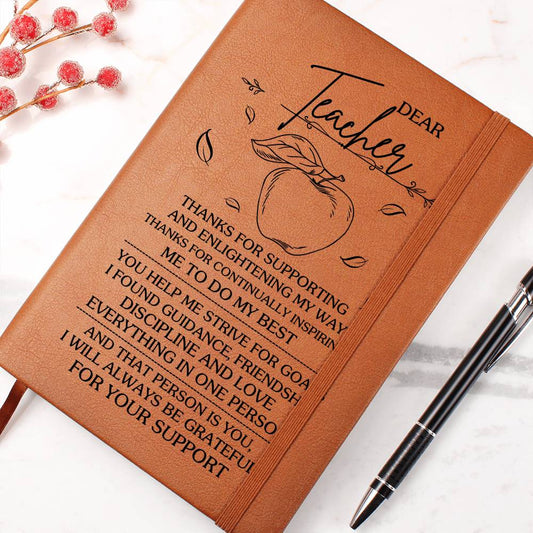 DEAR
Teacher
THANKS FOR SUPPORTING
AND ENLIGHTENING MY WAY
THANKS FOR CONTINUALLY INSPIRIN
ME TO DO MY BEST
YOU HELP ME STRIVE FOR GOA
I FOUND GUIDANCE, FRIENDSH
DISCIPLINE AND LOVE
EVERYTHING IN ONE PERSO
AND THAT PERSON IS YOU,
I WILL ALWAYS BE GRATEFUL
FOR YOUR SUPPORT